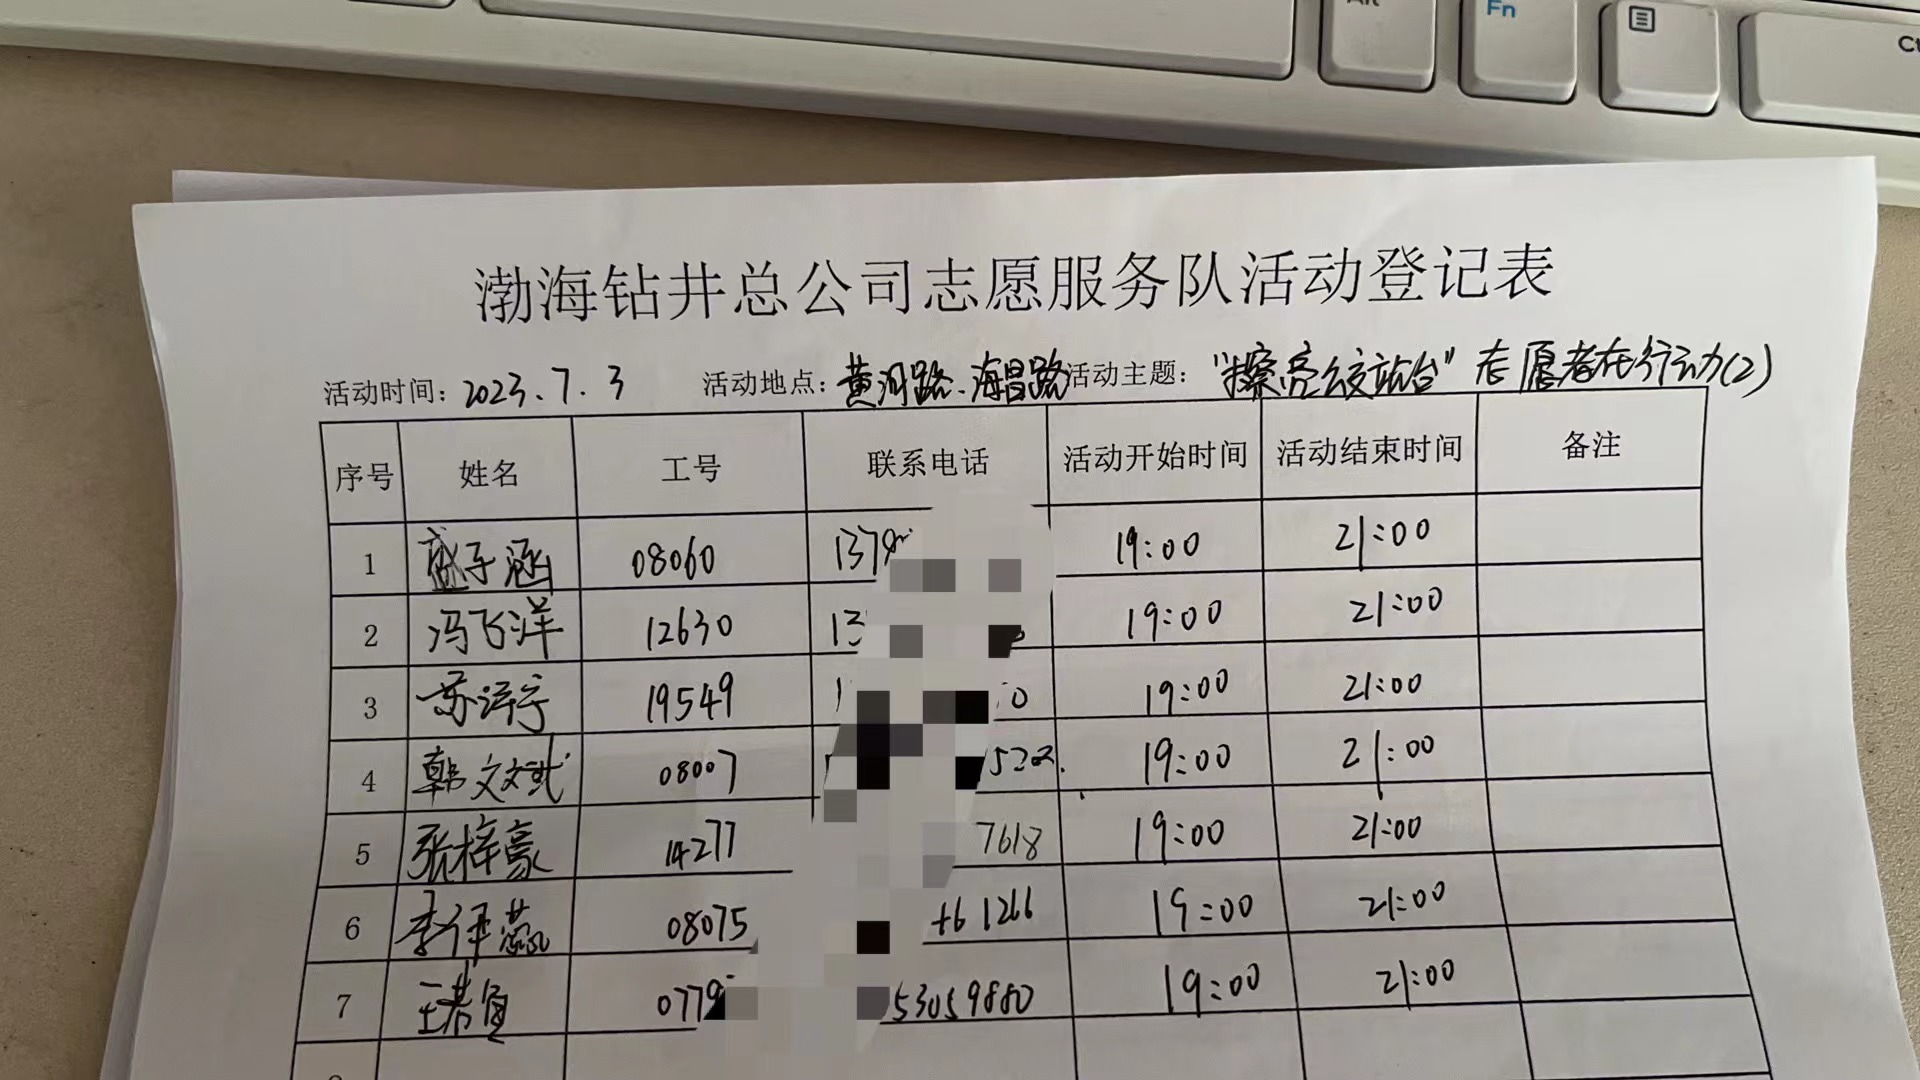 Alt Fn Ct
渤海钻井总公司志愿服务队活动登记表
活动时间：2023.7.3 活动地点：黄河路、海昌路 活动主题："擦亮公交站台"志愿者在行动(2)
序号 姓名 工号 联系电话 活动开始时间 活动结束时间 备注
1 子涵 08060 137 19:00 21:00
2 冯飞洋 12630 13 19:00 21:00
3 苏泽宇 19549 1 0 19:00 21:00
4 韩文斌 08007 52 19:00 21:00
5 张梓豪 14277 7618 19:00 21:00
6 李 08075 61266 19:00 21:00
7 王 0779 53059880 19:00 21:00